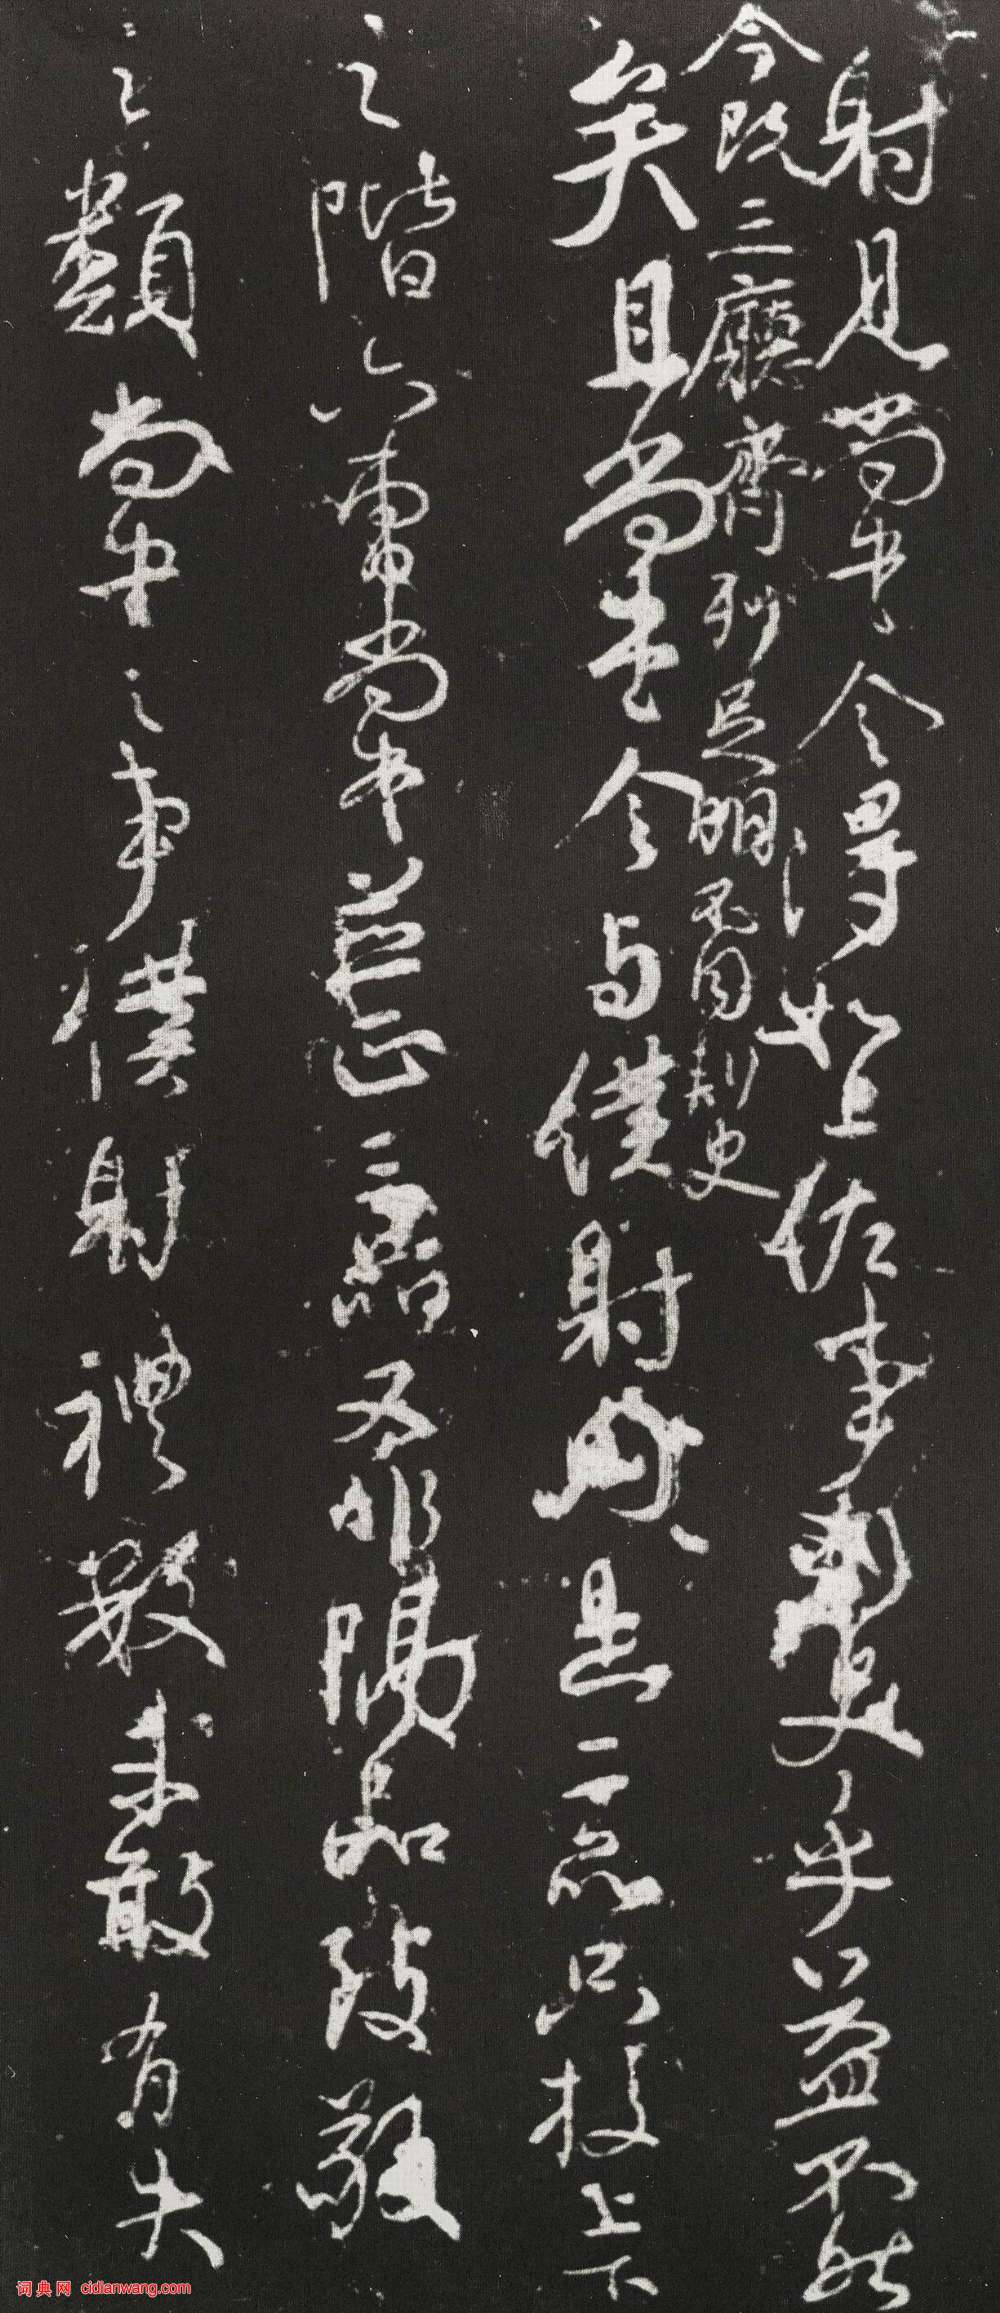 射見尚書令得如上佐事刺史乎益不然
今既三廳齊列足明不同刺史
矣且尚書令与僕射同是二品只校上下
之階六曹尚書並正三品又非隔品致敬
之類尚書之事僕射禮數未敢有失
词典网 cidianwang.com